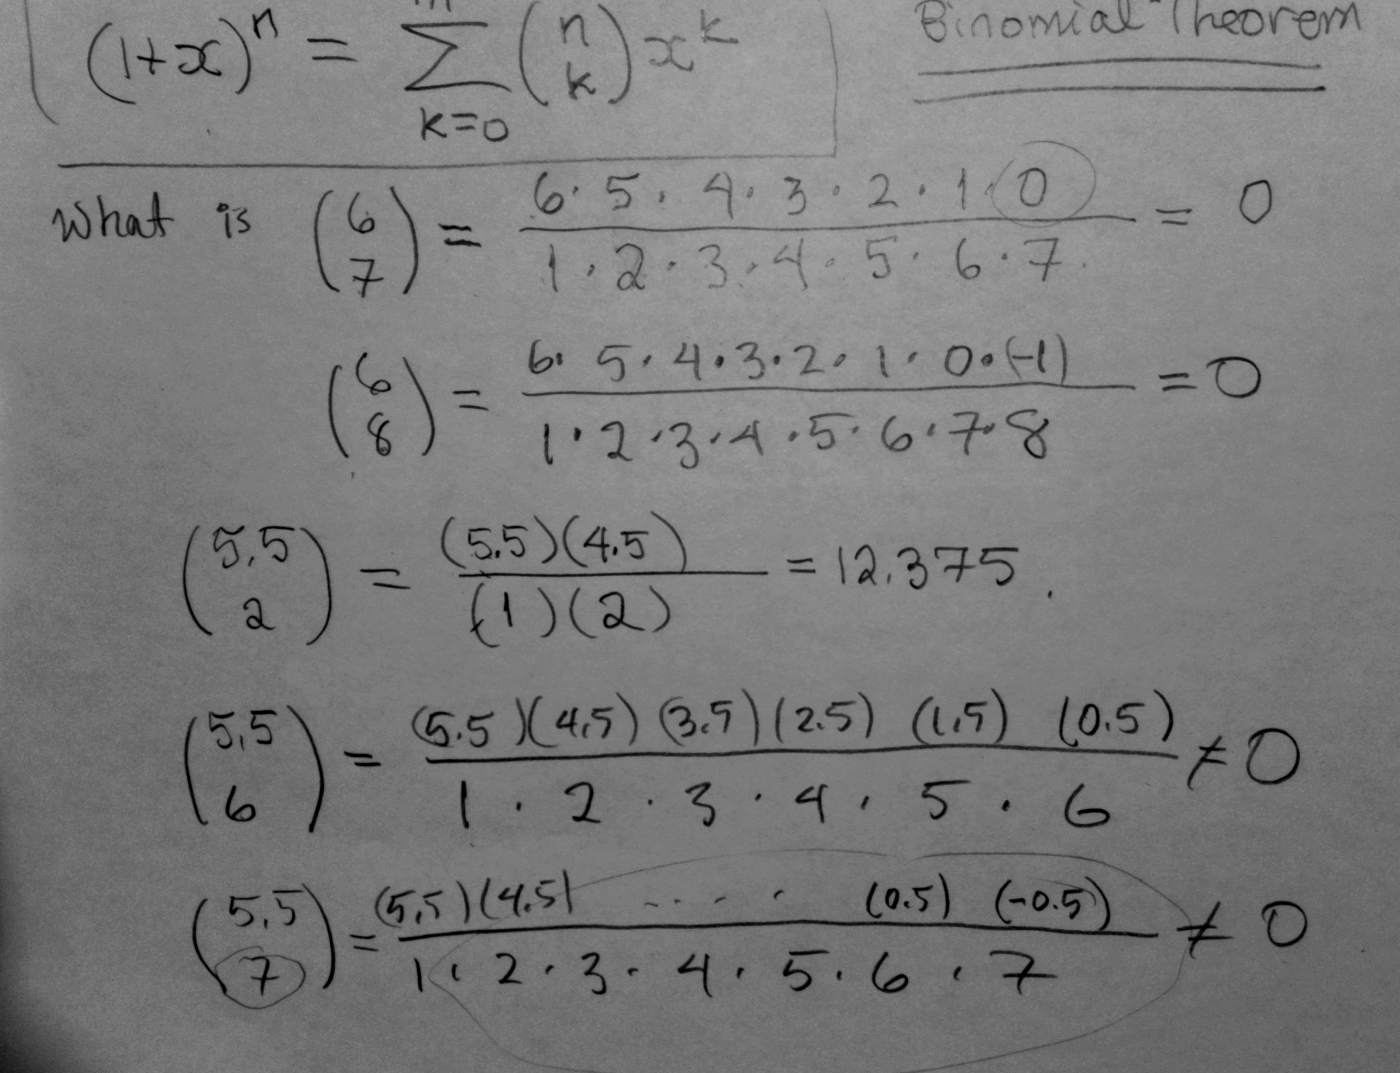 (1+x)^n = ∑_{k=0} (n k) x^k Binomial Theorem
What is (6 7) = 6·5·4·3·2·1·0 / 1·2·3·4·5·6·7 = 0
(6 8) = 6·5·4·3·2·1·0·(-1) / 1·2·3·4·5·6·7·8 = 0
(5.5 2) = (5.5)(4.5) / (1)(2) = 12.375.
(5.5 6) = (5.5)(4.5)(3.5)(2.5)(1.5)(0.5) / 1·2·3·4·5·6 ≠ 0
(5.5 7) = (5.5)(4.5) .... (0.5)(-0.5) / 1·2·3·4·5·6·7 ≠ 0